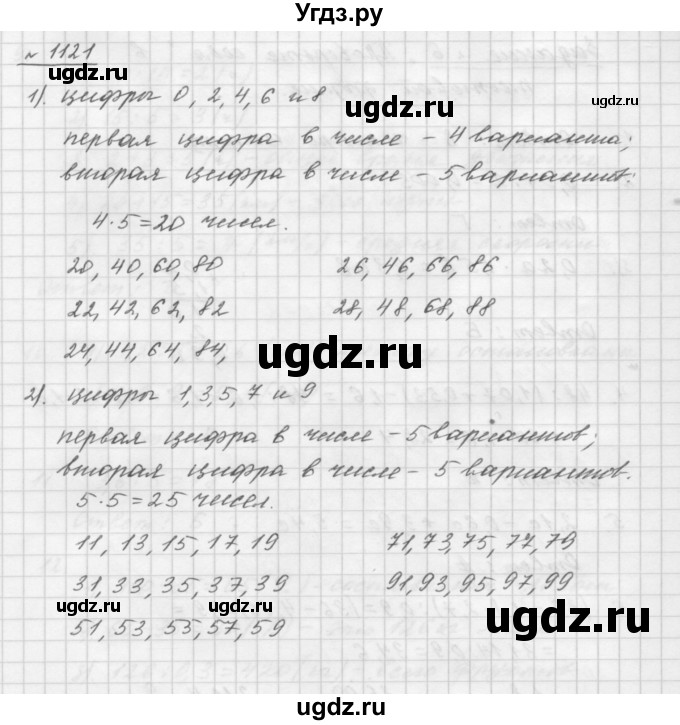 Угдз.ру
№ 1121
1). цифры 0, 2, 4, 6 и 8
первая цифра в числе – 4 варианта;
вторая цифра в числе – 5 вариантов.
4·5=20 чисел.
20, 40, 60, 80 26, 46, 66, 86
22, 42, 62, 82 28, 48, 68, 88
24, 44, 64, 84,
2). цифры 1, 3, 5, 7 и 9
первая цифра в числе – 5 вариантов;
вторая цифра в числе – 5 вариантов.
5·5=25 чисел.
11, 13, 15, 17, 19 71, 73, 75, 77, 79
31, 33, 35, 37, 39 91, 93, 95, 97, 99
51, 53, 55, 57, 59
ugdz.ru
ugdz.ru
ugdz.ru
ugdz.ru
ugdz.ru
ugdz.ru
ugdz.ru
ugdz.ru
ugdz.ru
Угдз.ру